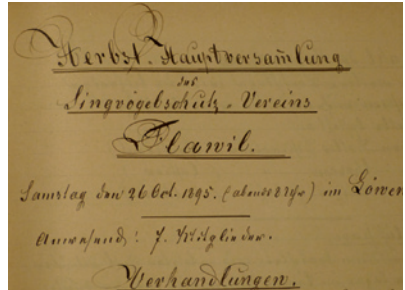 Herbst-Hauptversam̄lung
des
Singvögelschutz-Vereins
Flawil.
Samstag den 26 Oct. 1895. (abends 8 Uhr) im Löwen
Anwesend: 7. Mitglieder.
Verhandlungen.